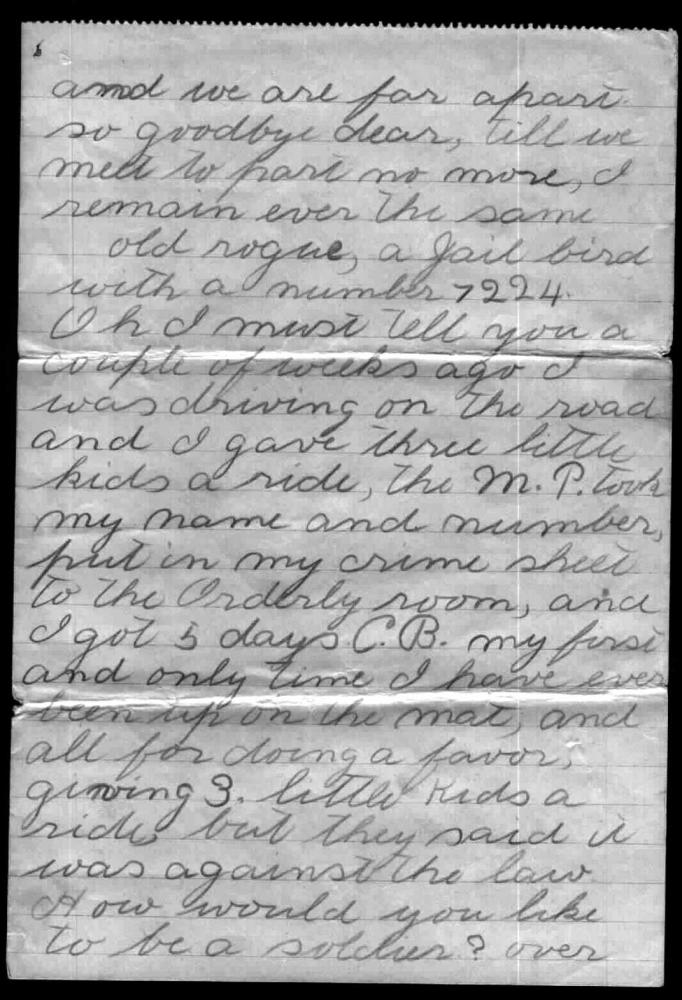 and we are far apart.
so goodbye dear, till we
meet to part no more, I
remain ever the same
old rogue, a Jail bird
with a number 7224.
Oh I must tell you a
couple of weeks ago I
was driving on the road
and I gave three little
kids a ride, the M. P. took
my name and number,
put in my crime sheet
to the Orderly room, and
I got 5 days C. B. my first
and only time I have ever
been up on the mat, and
all for doing a favor,
giving 3. little kids a
ride, but they said it
was against the law
How would you like
to be a soldier? over